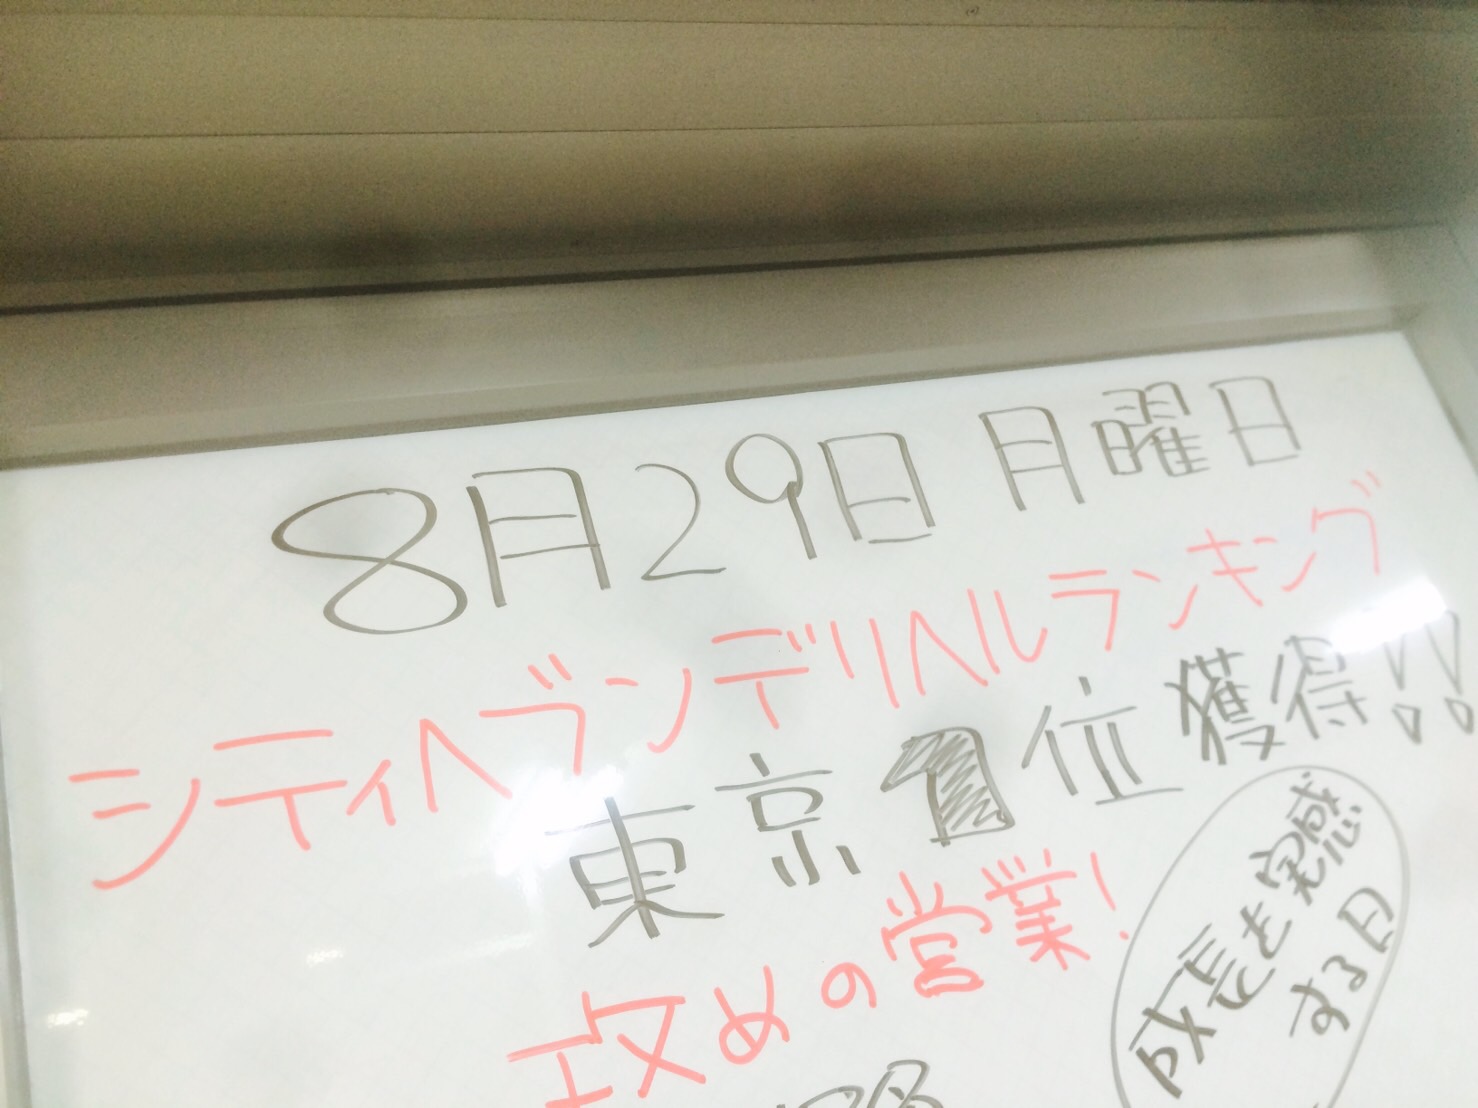 8月29日 月曜日
シティヘブンデリヘルランキング
東京1位獲得!!
攻めの営業!
成長を実感
する日